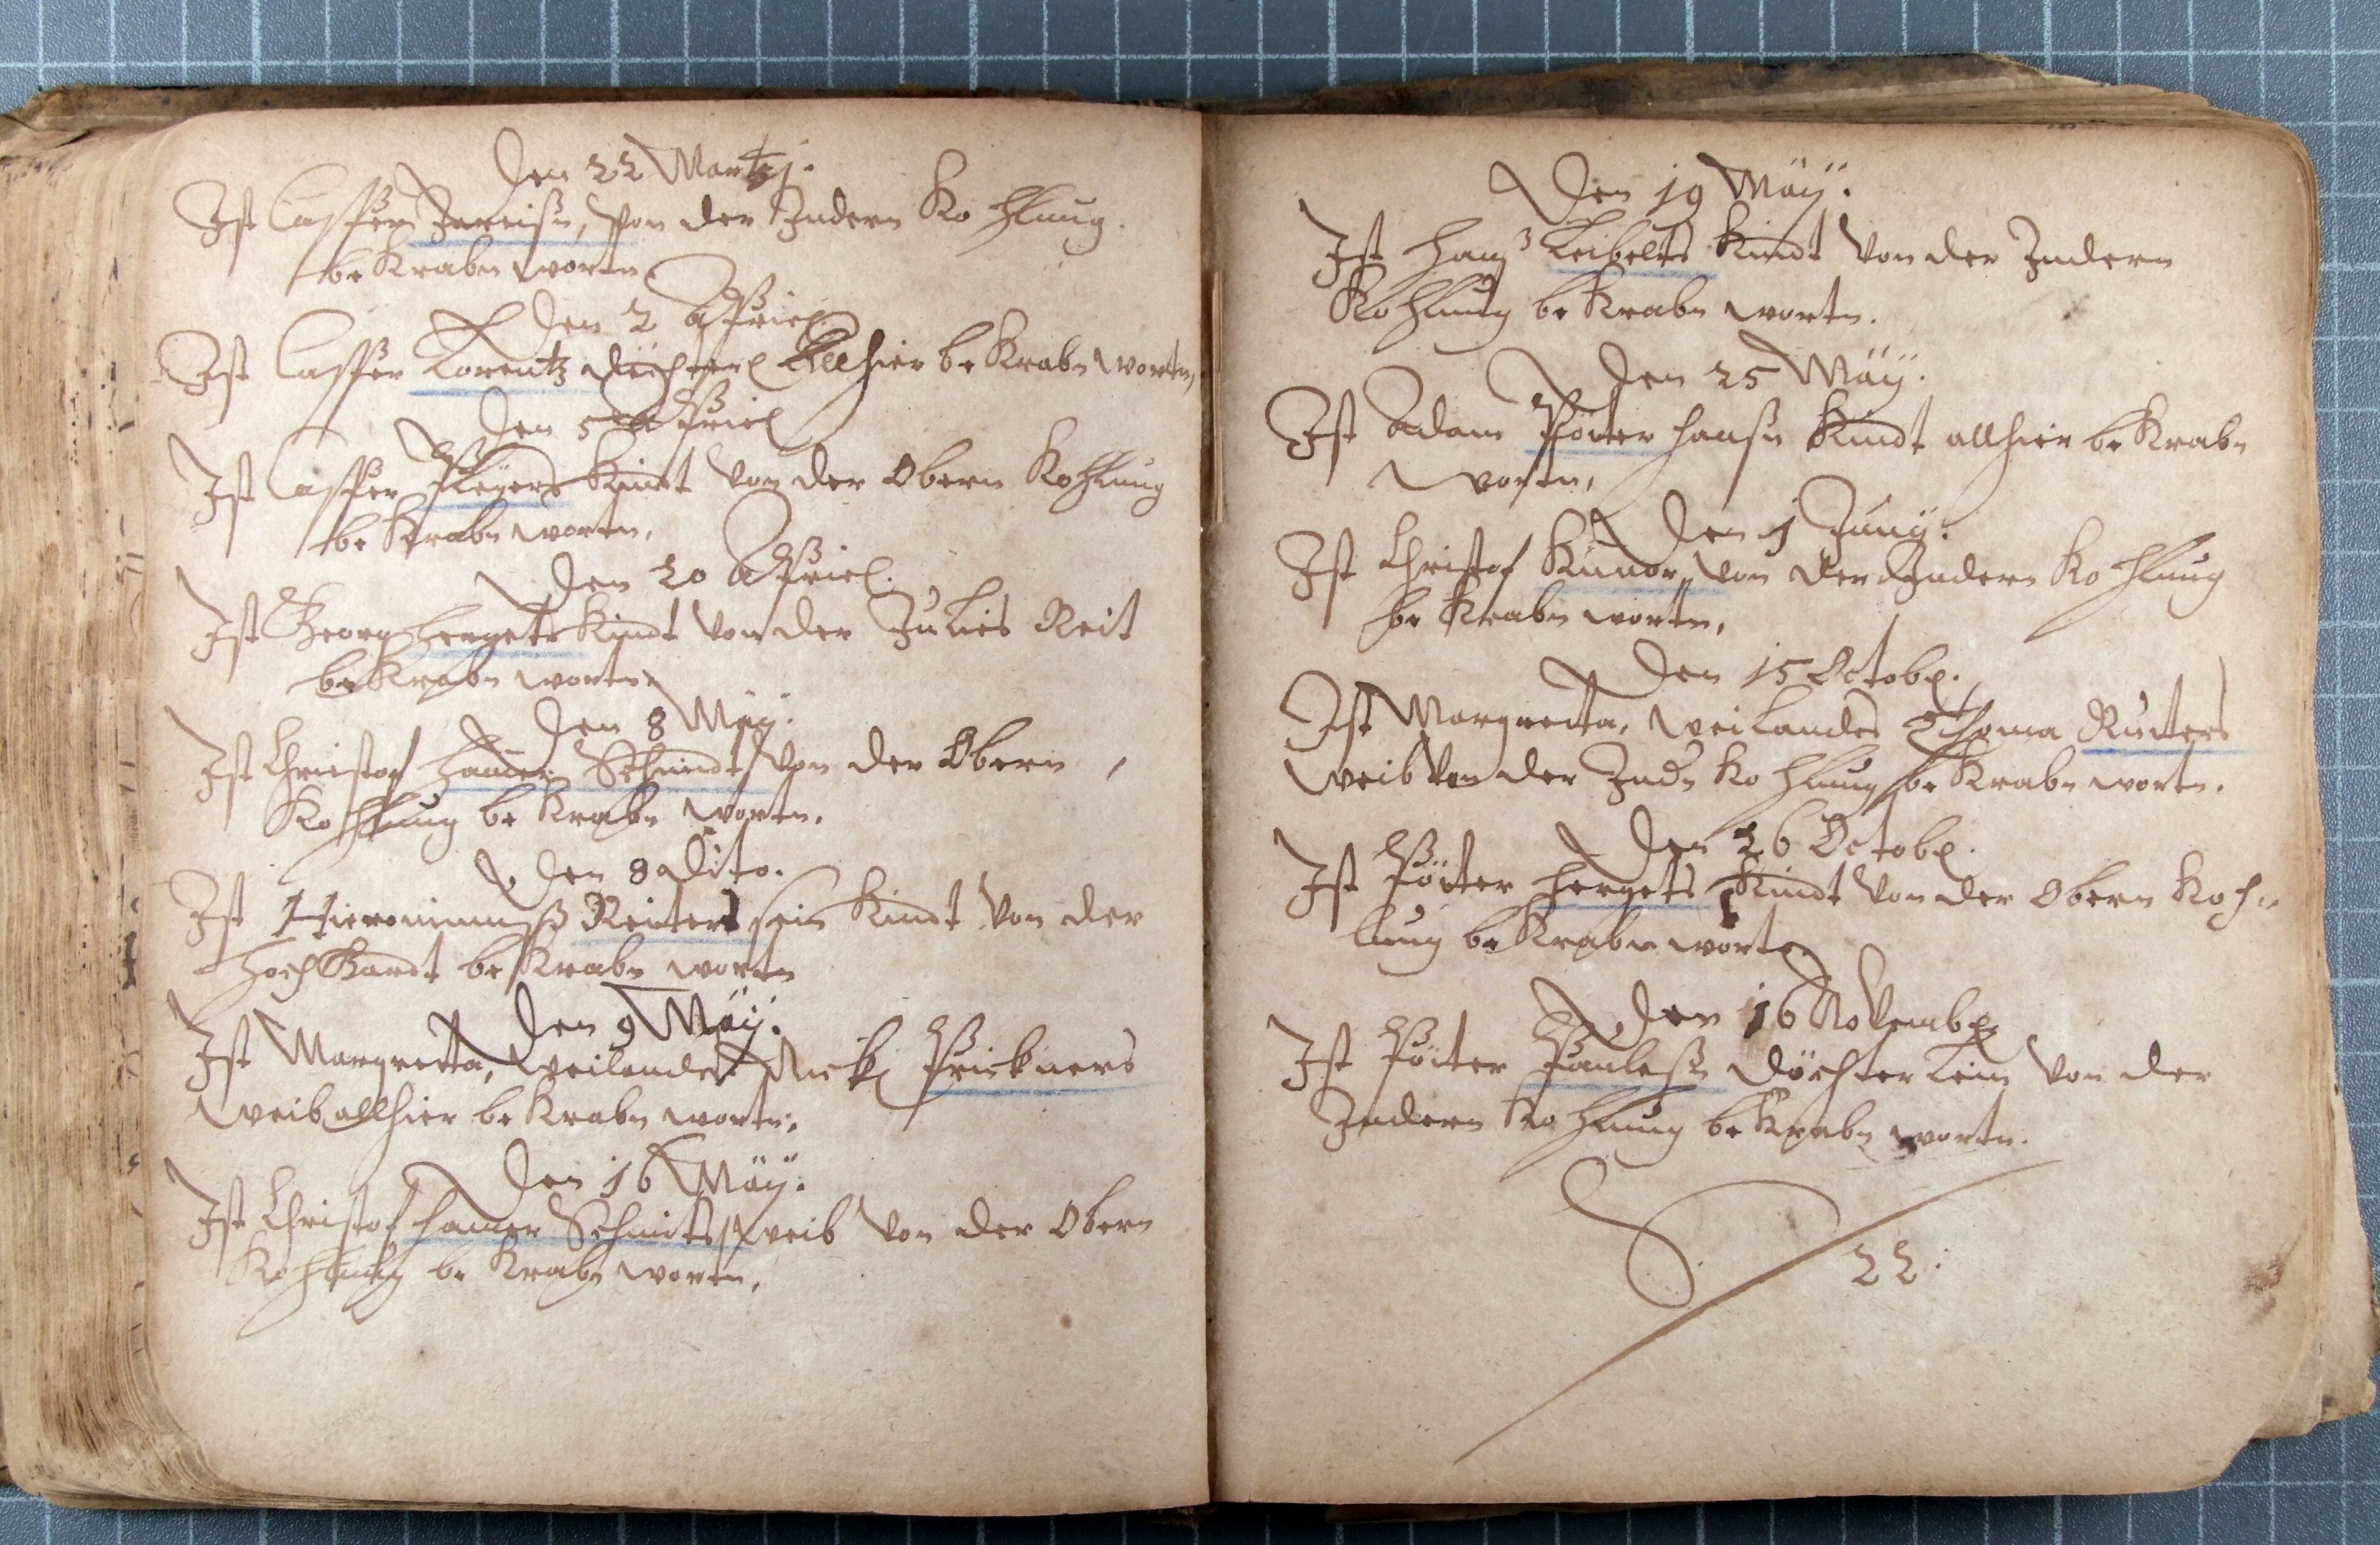 Den 22 Martzj.
Ist Casper Zureisn, Von der Indern Kohlung
be Kraben worten
Den 2 Appriel.
Ist Casper Lorentz döchterl Allhier be Kraben worten,
Den 5 Appriel
Ist Casper Pleyers Kindt Von der Obern Kohlung
be Kraben worten,
Den 20 Appriel.
Ist Georg Hergets Kindt Von der Julies Reit
be Kraben worten.
Den 8 Mäy.
Ist Christof Hamer Schmidt Von der Obern
Kohlung be Kraben worten.
Den 8 Dito.
Ist Hieronimuß Reiters sein Kindt Von der
Hoch Gardt be Kraben worten
Den 9 Mäÿ.
Ist Margretta, Weilandes Nickl Prickners
Weib allhier be Kraben worten.
Den 16 Mäÿ.
Ist Christof Hamer Schmits Weib Von der Obern
Kohlung be Kraben worten.
Den 19 Mäÿ.
Ist Hanß Leibelts Kindt Von der Indern
Kohlung be Kraben worten.
Den 25 Mäÿ.
Ist Adam Pöiter Hansn Kindt allhier be Kraben
worten,
Den 1 Junÿ.
Ist Christof Von der Indern Kohlung
be Kraben worten,
Den 15 Octob.
Ist Margretta, Weilandes Thoma Ruiters
Weib Von der Indn Kohlung be Kraben worten.
Den 26 Octob.
Ist Pöiter Hergets Kindt Von der Obern Koh-
lung be Kraben worten
Den 16 Novemb.
Ist Pöiter Paulesn döchterlein Von der
Indern Kohlung be Kraben worten.
22.